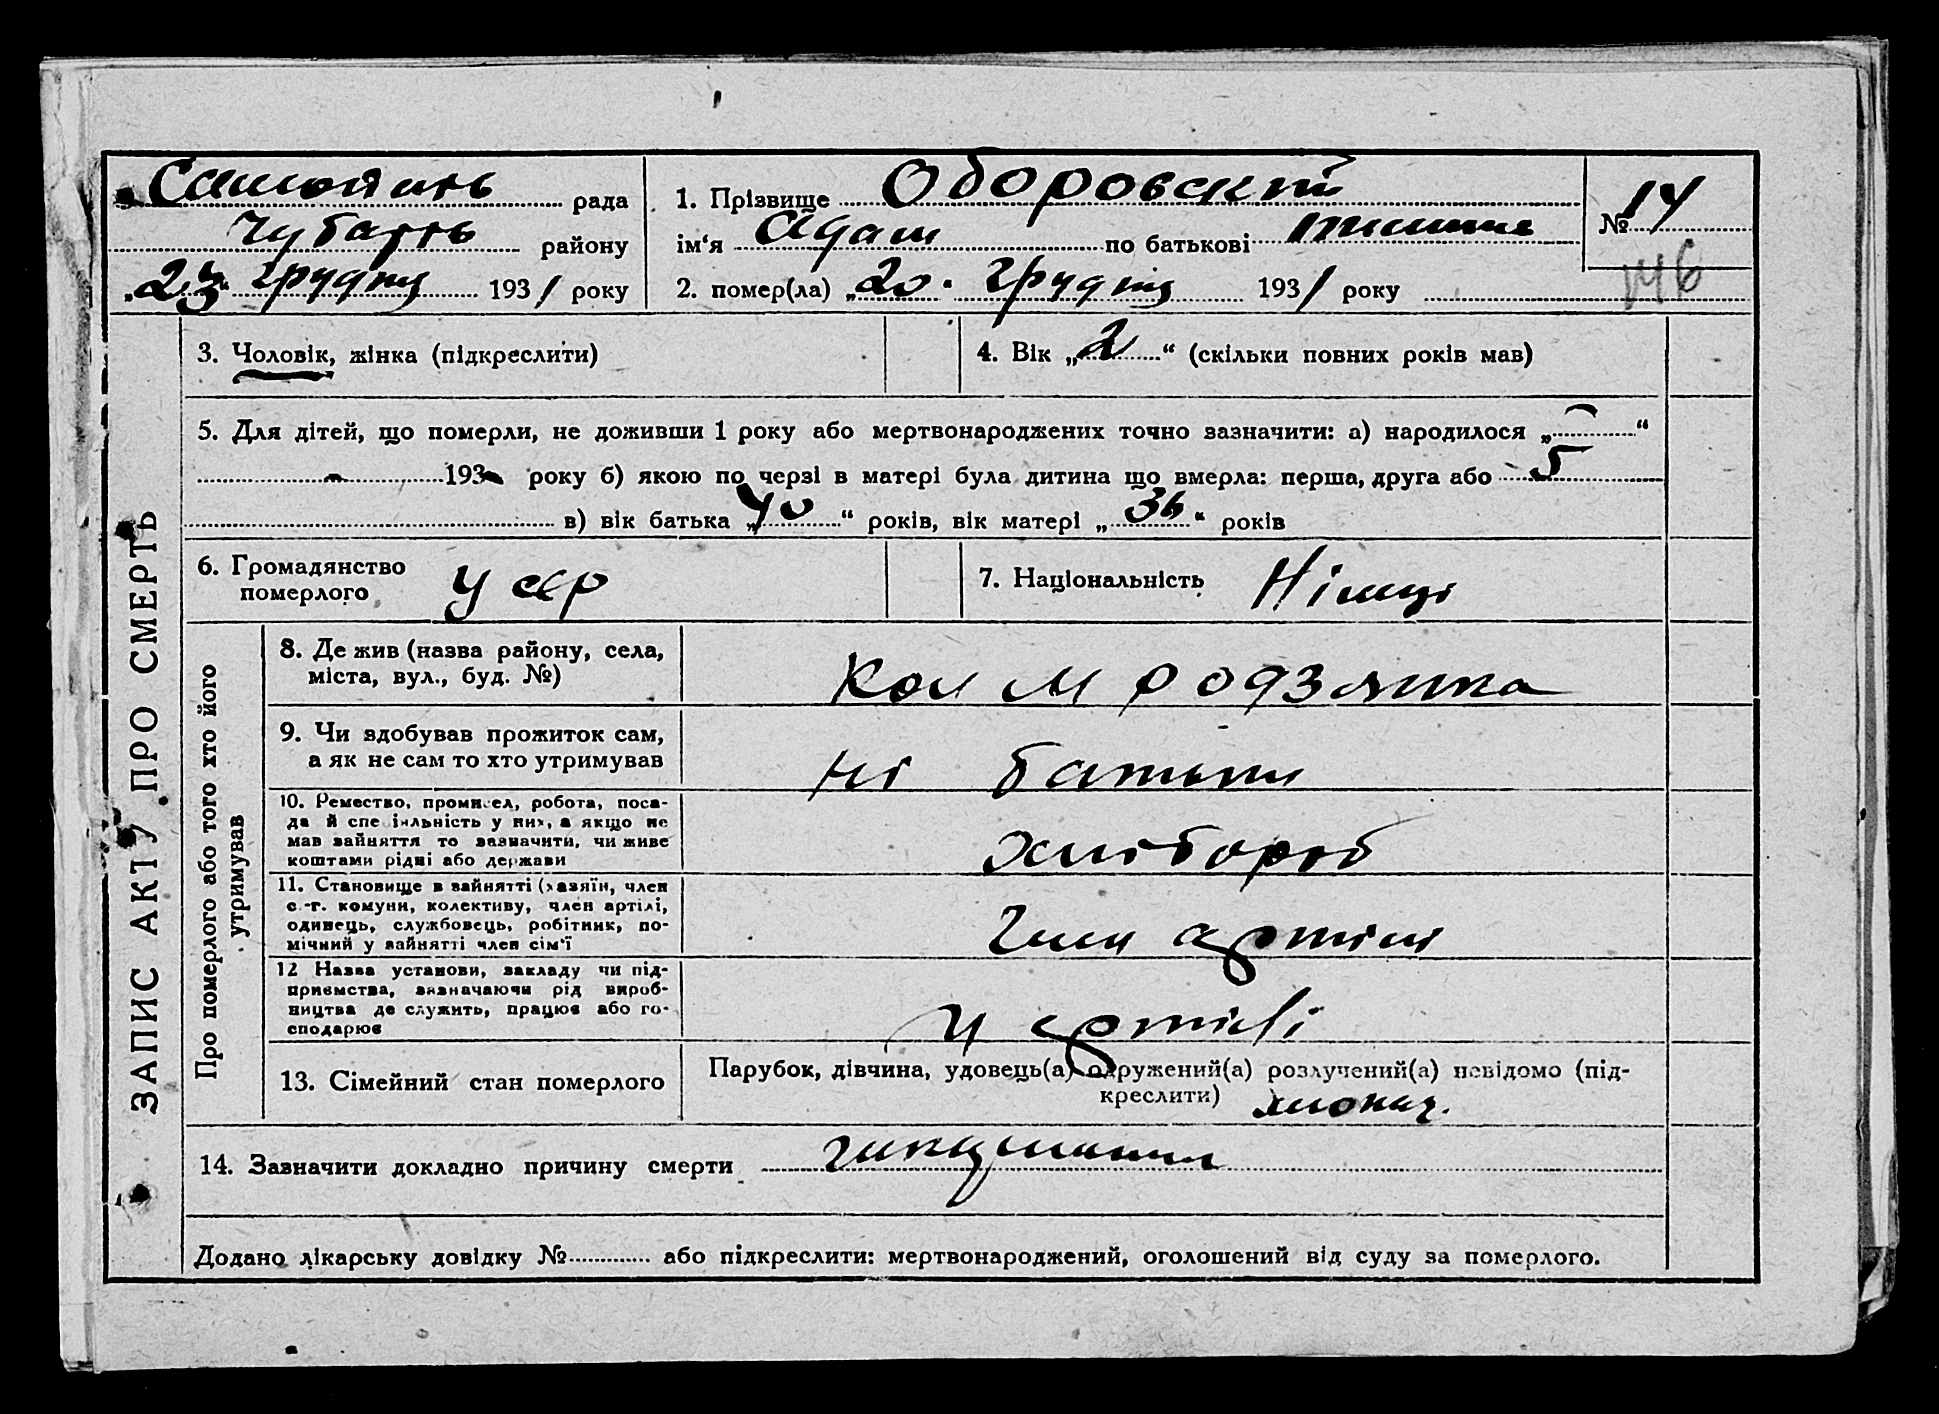 рада
Чубарів району
„23“ грудня 1931 року
1. Прізвище Оборовский
ім‘я Адам по батькові
2. помер(ла) „20“ грудня 1931 року
№ 14
146
ЗАПИС АКТУ ПРО СМЕРТЬ
3. Чоловік, жінка (підкреслити)
4. Вік „2“ (скільки повних років мав)
5. Для дітей, що померли, не доживши 1 року або мертвонароджених точно зазначити: а) народилося „—“
193 року б) якою по черзі в матері була дитина що вмерла: перша, друга або 5
в) вік батька „40“ років, вік матері „36“ років
6. Громадянство
померлого усср
7. Національність Німці
Про померлого або того хто його
утримував
8. Де жив (назва району, села,
міста, вул., буд. №)
Кол М родзянка
9. Чи здобував прожиток сам,
а як не сам то хто утримував
ні батьки
10. Ремество, промисел, робота, поса-
да й спеціяльність у них, а якщо не
мав зайняття то зазначити, чи живе
коштами рідні або держави
хлібороб
11. Становище в зайнятті (хазяїн, член
с.-г. комуни, колективу, член артілі,
одинець, службовець, робітник, по-
мічний у зайнятті член сім‘ї
Член артілі
12 Назва установи, закладу чи під-
приємства, зазначаючи рід вироб-
ництва де служить, працює або го-
сподарює
у артілі
13. Сімейний стан померлого
Парубок, дівчина, удовець(а) одружений(а) розлучений(а) невідомо (під-
креслити)
14. Зазначити докладно причину смерти
Додано лікарську довідку № або підкреслити: мертвонароджений, оголошений від суду за померлого.